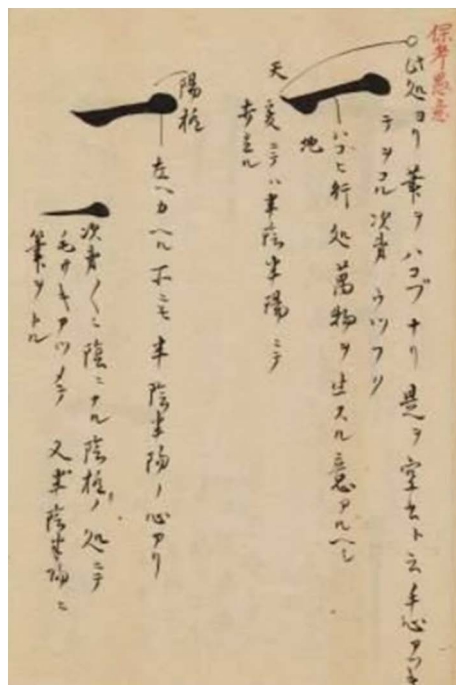 保考愚意
○此処ヨリ筆ヲハコブナリ是ヲ空去ト云手心アツテ
テヲコル次第ウツフリ
ハコヒ行処萬物ヲ生スル意アルヘシ
天
地
爰ニテハ半陰半陽ニテ
陽極
左ヘカヘル所ニモ半陰半陽ノ心アリ
次第〱ニ陰ニナル陰極ノ処ニテ
毛サキアツメテ又半陰半陽ニ
筆ヲトル